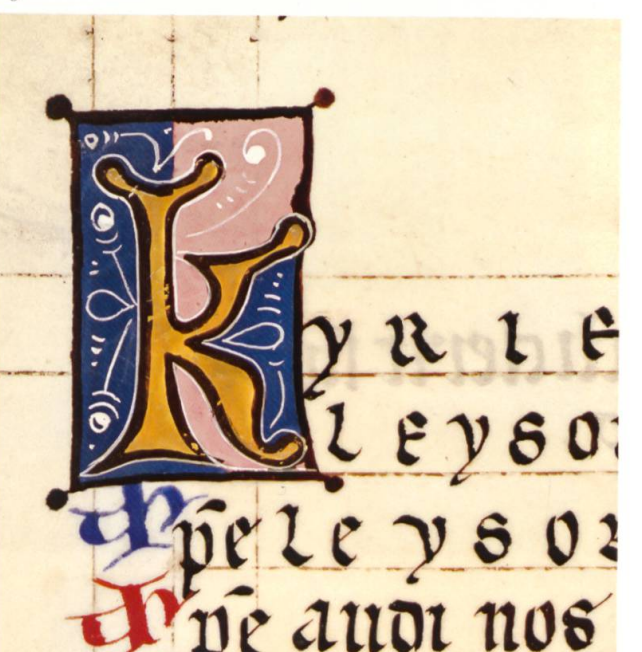 KYRIE
LEYSO
xp̄e leyso
xp̄e audi nos